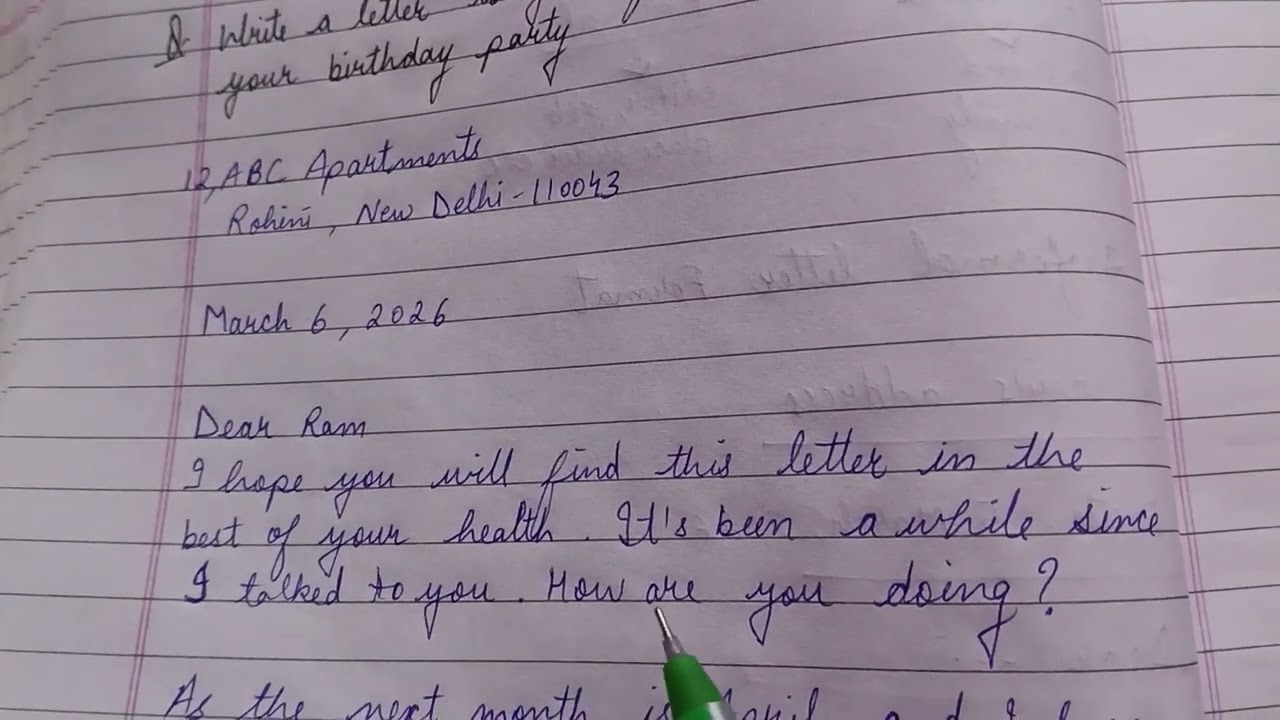 Q Write a letter
your birthday party
12, ABC Apartments
Rohini, New Delhi - 110043
March 6, 2026
Dear Ram
I hope you will find this letter in the
best of your health. It's been a while since
I talked to you. How are you doing?
As the next month is April